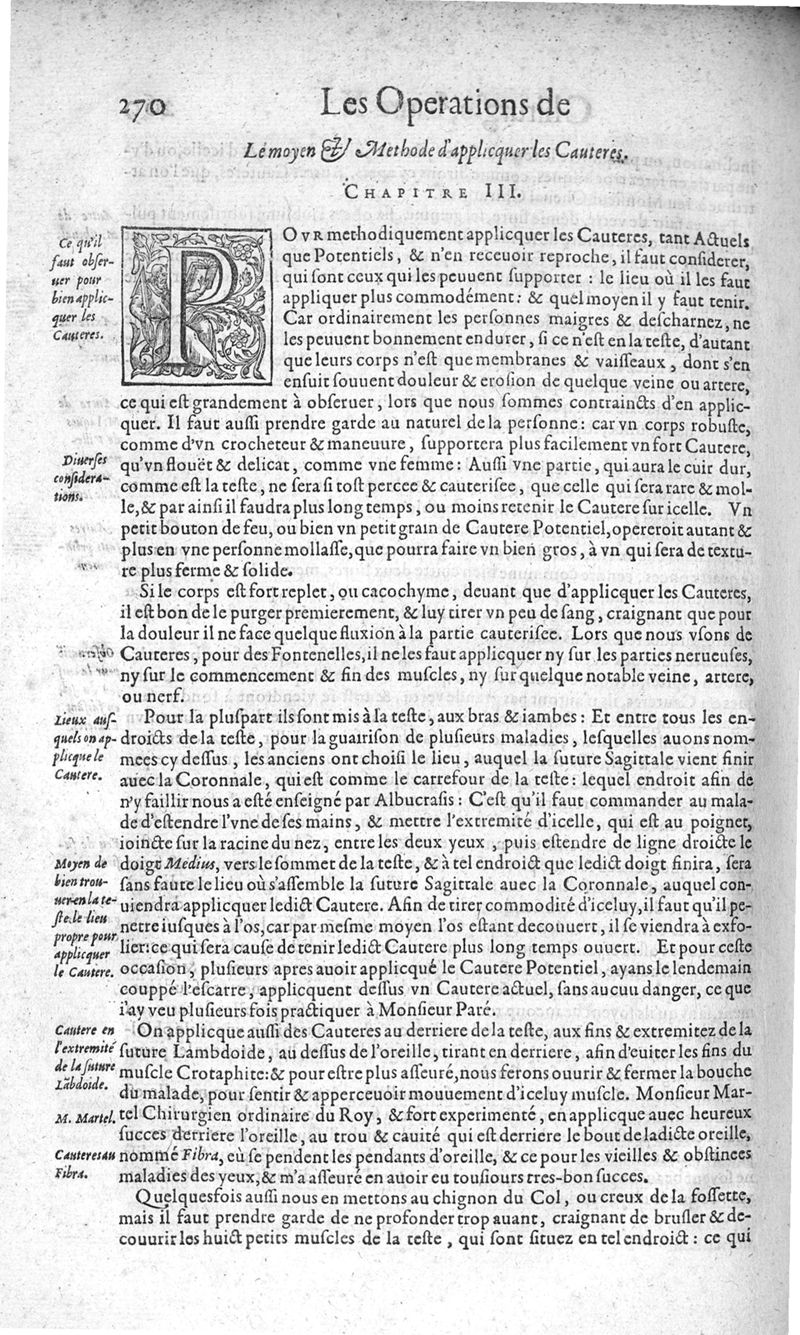 270 Les Operations de
Le moyen & Methode d'applicquer les Cauteres.
CHAPITRE III.
Ce qu'il
faut obser-
uer pour
bien applic-
quer les
Cauteres.
POVR methodiquement applicquer les Cauteres, tant Actuels
que Potentiels, & n'en receuoir reproche, il faut considerer,
qui sont ceux qui les peuuent supporter : le lieu où il les faut
appliquer plus commodément: & quel moyen il y faut tenir.
Car ordinairement les personnes maigres & descharnez, ne
les peuuent bonnement endurer, si ce n'est en la teste, d'autant
que leurs corps n'est que membranes & vaisseaux, dont s'en
ensuit souuent douleur & erosion de quelque veine ou artere,
ce qui est grandement à obseruer, lors que nous sommes contraincts d'en applic-
quer. Il faut aussi prendre garde au naturel de la personne: car vn corps robuste,
comme d'vn crocheteur & maneuure, supportera plus facilement vn fort Cautere,
Diuerses
considera-
tions.
qu'vn flouët & delicat, comme vne femme: Aussi vne partie, qui aura le cuir dur,
comme est la teste, ne sera si tost percee & cauterisee, que celle qui sera rare & mol-
le, & par ainsi il faudra plus long temps, ou moins retenir le Cautere sur icelle. Vn
petit bouton de feu, ou bien vn petit grain de Cautere Potentiel, opereroit autant &
plus en vne personne mollasse, que pourra faire vn bien gros, à vn qui sera de textu-
re plus ferme & solide.
Si le corps est fort replet, ou cacochyme, deuant que d'applicquer les Cauteres,
il est bon de le purger premierement, & luy tirer vn peu de sang, craignant que pour
la douleur il ne face quelque fluxion à la partie cauterisee. Lors que nous vsons de
Cauteres, pour des Fontenelles, il ne les faut applicquer ny sur les parties nerueuses,
ny sur le commencement & fin des muscles, ny sur quelque notable veine, artere,
ou nerf.
Lieux aus-
quels on ap-
plicque le
Cautere.
Pour la pluspart ils sont mis à la teste, aux bras & iambes: Et entre tous les en-
droicts de la teste, pour la guairison de plusieurs maladies, lesquelles auons nom-
mees cy dessus, les anciens ont choisi le lieu, auquel la suture Sagittale vient finir
auec la Coronnale, qui est comme le carrefour de la teste: lequel endroit afin de
n'y faillir nous a esté enseigné par Albucrasis: C'est qu'il faut commander au mala-
de d'estendre l'vne de ses mains, & mettre l'extremité d'icelle, qui est au poignet,
ioincte sur la racine du nez, entre les deux yeux, puis estendre de ligne droicte le
Moyen de
bien trou-
uer en la te-
ste, le lieu
propre pour
applicquer
le Cautere.
doigt Medius, vers le sommet de la teste, & à tel endroict que ledict doigt finira, sera
sans faute le lieu où s'assemble la suture Sagittale auec la Coronnale, auquel con-
uiendra applicquer ledict Cautere. Afin de tirer commodité d'iceluy, il faut qu'il pe-
netre iusques à l'os, car par mesme moyen l'os estant decouuert, il se viendra à exfo-
lier: ce qui sera cause de tenir ledict Cautere plus long temps ouuert. Et pour ceste
occasion, plusieurs apres auoir applicqué le Cautere Potentiel, ayans le lendemain
couppé l'escarre, applicquent dessus vn Cautere actuel, sans aucuu danger, ce que
i'ay veu plusieurs fois practiquer à Monsieur Paré.
Cautere en
l'extremité
de la suture
Lābdoide.
On applicque aussi des Cauteres au derriere de la teste, aux fins & extremitez de la
suture Lambdoide, au dessus de l'oreille, tirant en derriere, afin d'euiter les fins du
muscle Crotaphite: & pour estre plus asseuré, nous ferons ouurir & fermer la bouche
du malade, pour sentir & apperceuoir mouuement d'iceluy muscle. Monsieur Mar-
M. Martel.
tel Chirurgien ordinaire du Roy, & fort experimenté, en applicque auec heureux
succes derriere l'oreille, au trou & cauité qui est derriere le bout de ladicte oreille,
Cauteres au
Fibra.
nommé Fibra, eù se pendent les pendants d'oreille, & ce pour les vieilles & obstinees
maladies des yeux, & m'a asseuré en auoir eu tousiours tres-bon succes.
Quelquesfois aussi nous en mettons au chignon du Col, ou creux de la fossette,
mais il faut prendre garde de ne profonder trop auant, craignant de brusler & de-
couurir les huict petits muscles de la teste, qui sont situez en tel endroict: ce qui